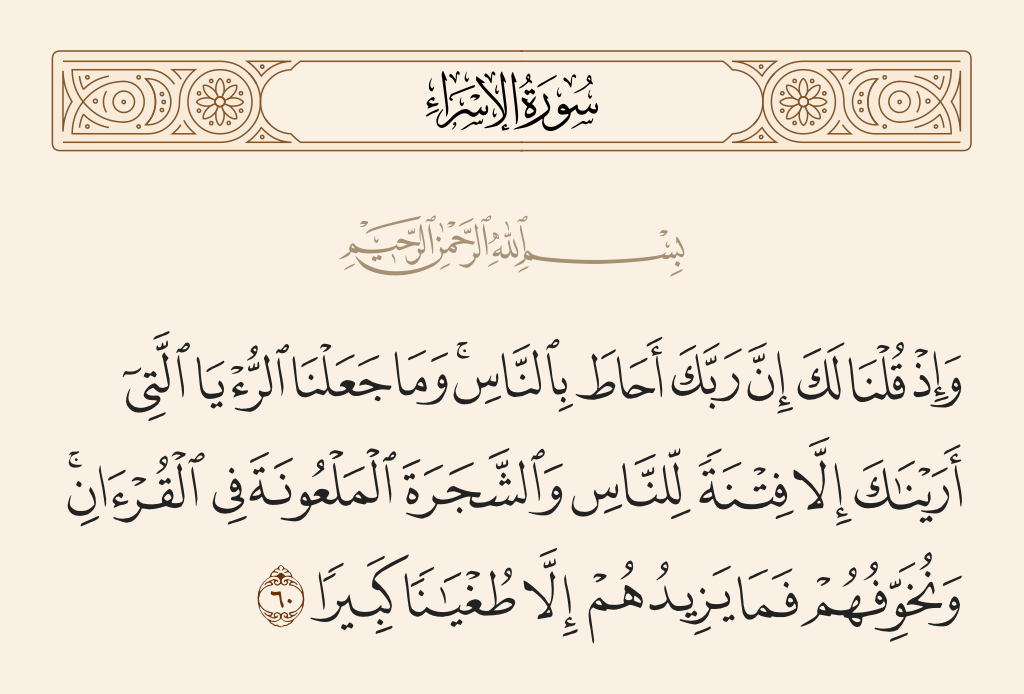 سُورَةُ الإِسْرَاءِ
بِسْمِ ٱللَّهِ ٱلرَّحْمَٰنِ ٱلرَّحِيمِ
وَإِذْ قُلْنَا لَكَ إِنَّ رَبَّكَ أَحَاطَ بِٱلنَّاسِ ۚ وَمَا جَعَلْنَا ٱلرُّءْيَا ٱلَّتِىٓ
أَرَيْنَٰكَ إِلَّا فِتْنَةً لِّلنَّاسِ وَٱلشَّجَرَةَ ٱلْمَلْعُونَةَ فِى ٱلْقُرْءَانِ ۚ
وَنُخَوِّفُهُمْ فَمَا يَزِيدُهُمْ إِلَّا طُغْيَٰنًا كَبِيرًا ٦٠